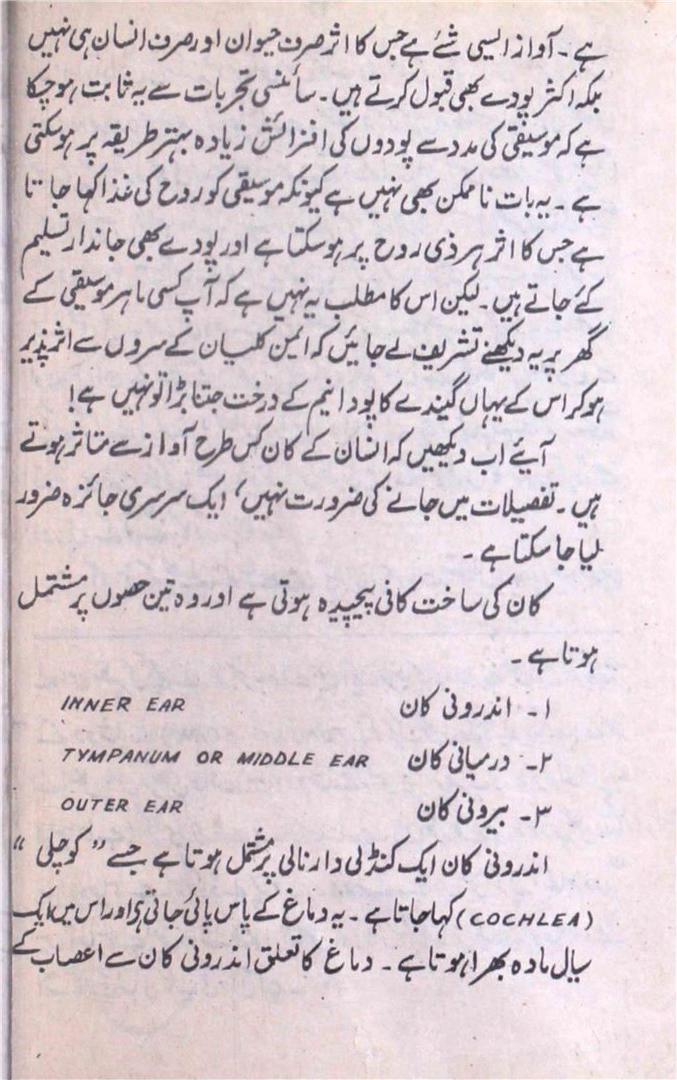 ہے۔ آواز ایسی شئے ہے جس کا اثر صرف حیوان اور صرف انسان ہی نہیں
بلکہ اکثر پودے بھی قبول کرتے ہیں۔ سائنسی تجربات سے یہ ثابت ہو چکا
ہے کہ موسیقی کی مدد سے پودوں کی افزائش زیادہ بہتر طریقہ پر ہوسکتی
ہے۔ یہ بات ناممکن بھی نہیں ہے کیونکہ موسیقی کو روح کی غذا کہا جاتا
ہے جس کا اثر ہر ذی روح پر ہو سکتا ہے اور پودے بھی جاندار تسلیم
کئے جاتے ہیں۔ لیکن اس کا مطلب یہ نہیں ہے کہ آپ کسی ماہر موسیقی کے
گھر پر یہ دیکھنے تشریف لے جائیں کہ ایمن کلیان کے سروں سے اثر پذیر
ہو کر اس کے یہاں گیندے کا پودا نیم کے درخت جتنا بڑا تو نہیں ہے!
آیئے اب دیکھیں کہ انسان کے کان کس طرح آواز سے متاثر ہوتے
ہیں۔ تفصیلات میں جانے کی ضرورت نہیں، ایک سرسری جائزہ ضرور
لیا جا سکتا ہے۔
کان کی ساخت کافی پیچیدہ ہوتی ہے اور وہ تین حصوں پر مشتمل
ہوتا ہے۔
۱۔ اندرونی کان INNER EAR
۲۔ درمیانی کان TYMPANUM OR MIDDLE EAR
۳۔ بیرونی کان OUTER EAR
اندرونی کان ایک کنڈلی دار نالی پر مشتمل ہوتا ہے جسے "کوچلی"
(COCHLEA) کہا جاتا ہے۔ یہ دماغ کے پاس پائی جاتی ہے اور اس میں ایک
سیال مادہ بھرا ہوتا ہے۔ دماغ کا تعلق اندرونی کان سے اعصاب کے